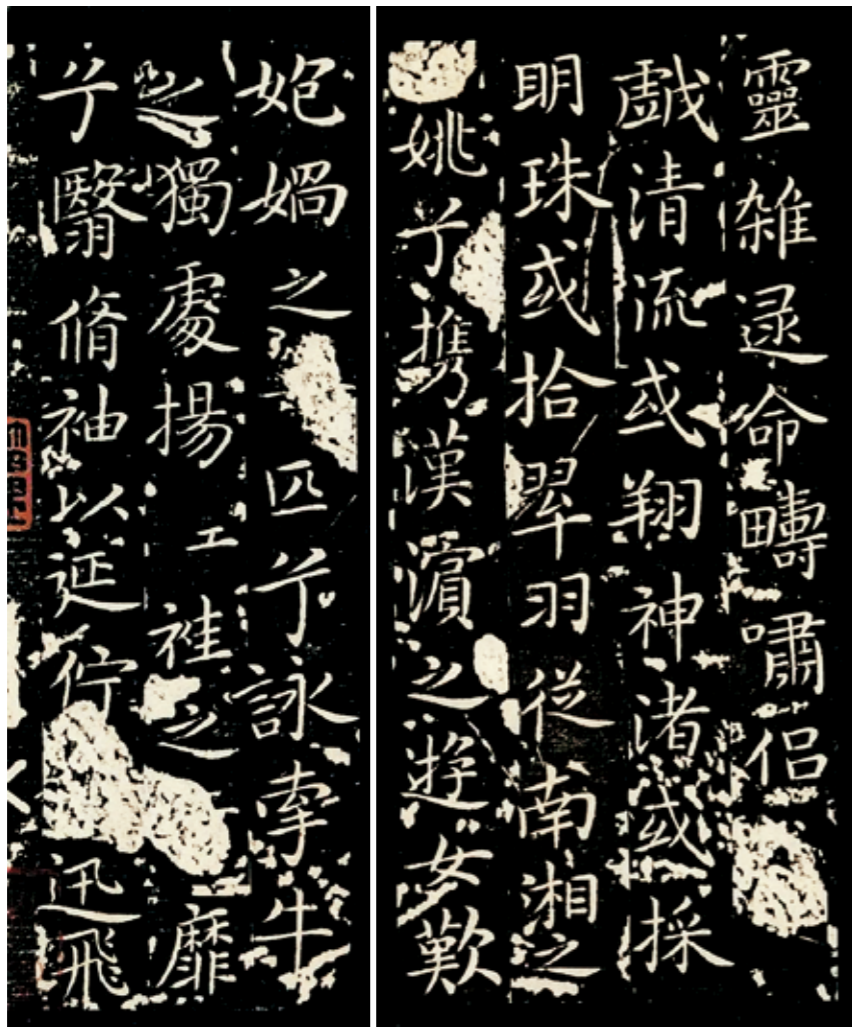 靈雜遝命疇嘯侣
戲清流或翔神渚或採
明珠或拾翠羽從南湘之
姚兮携漢濱之遊女歎
㚿媧之匹兮詠牽牛
之獨處揚袿之靡
兮翳脩袖以延佇迅飛